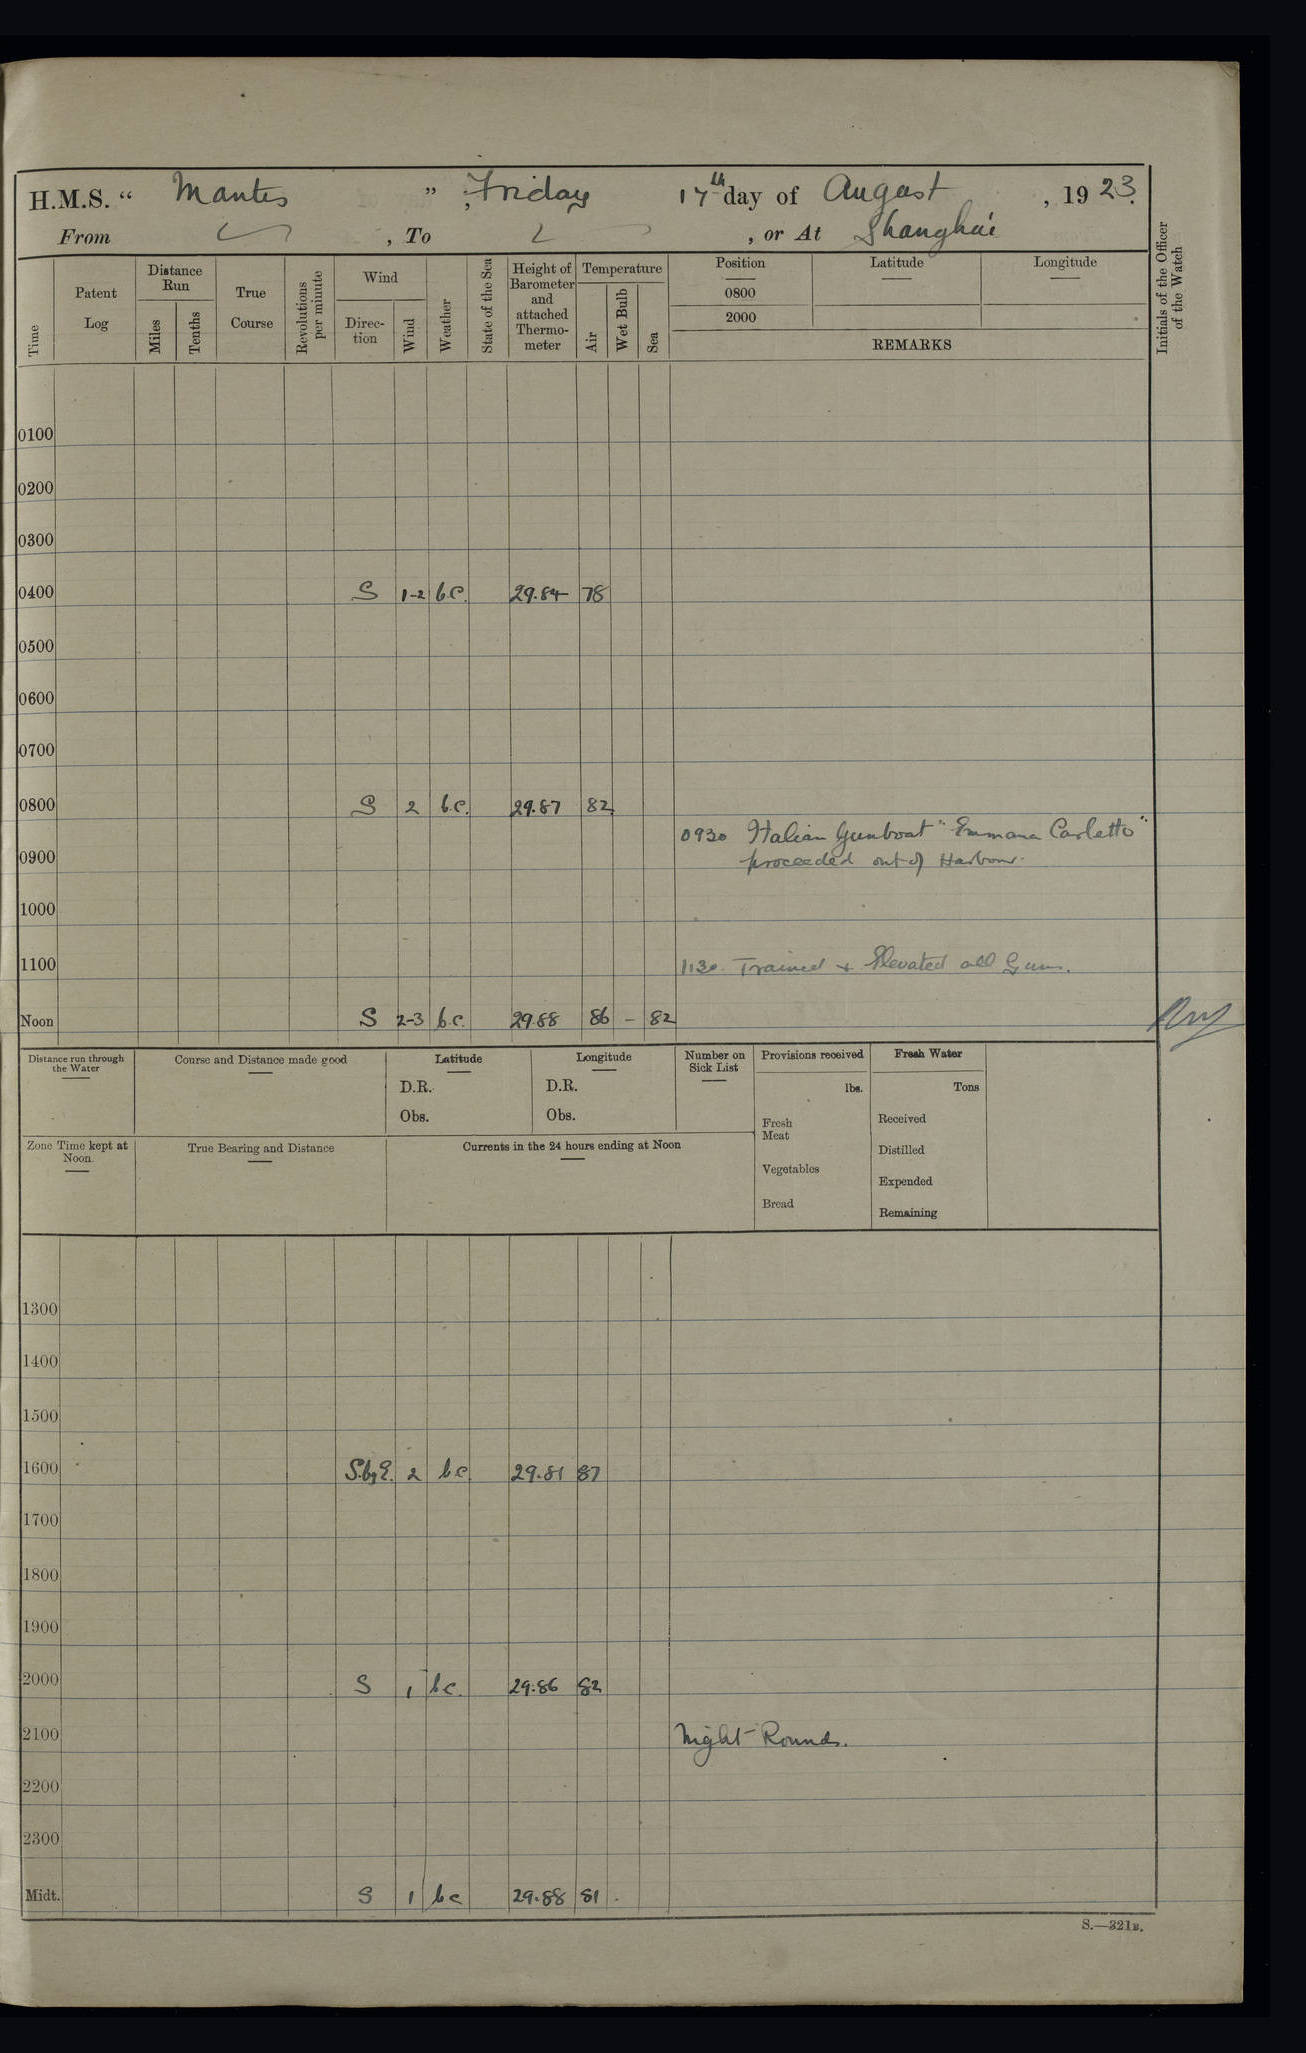 H.M.S. “ Mantis ”, Friday 17th day of August, 1923.
From , To , or At Shanghai
Time
Patent Log
Distance Run
Miles
Tenths
True Course
Revolutions per minute
Wind
Direc-tion
Wind
Weather
State of the Sea
Height of Barometer and attached Thermo-meter
Temperature
Air
Wet Bulb
Sea
Position
0800
2000
Latitude
Longitude
REMARKS
Initials of the Officer of the Watch
0100
0200
0300
0400 S 1-2 b.c. 29.84 78
0500
0600
0700
0800 S 2 b.c. 29.87 82
0930 Italian Gunboat "Emmana Carletto"
0900 proceeded out of Harbour.
1000
1100 1130. Trained + Elevated all Guns.
Noon S 2-3 b.c. 29.88 86 - 82
Distance run through the Water
Course and Distance made good
Latitude
D.R.
Obs.
Longitude
D.R.
Obs.
Number on Sick List
Provisions received
lbs.
Fresh Meat
Vegetables
Bread
Fresh Water
Tons
Received
Distilled
Expended
Remaining
Zone Time kept at Noon.
True Bearing and Distance
Currents in the 24 hours ending at Noon
1300
1400
1500
1600 S.by E. 2 bc 29.81 87
1700
1800
1900
2000 S 1 bc. 29.86 82
2100 Night Rounds.
2200
2300
Midt. S 1 bc 29.88 81
S.—321B.